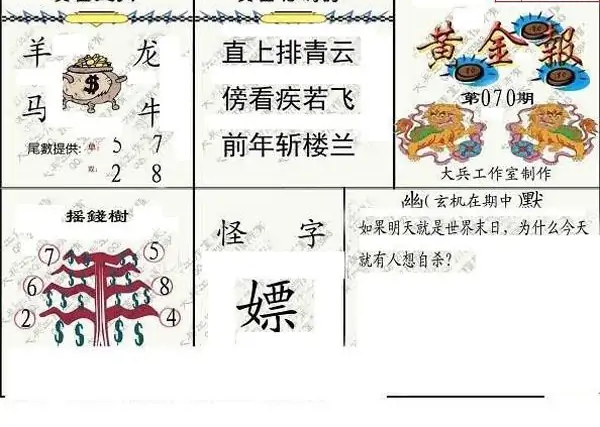 羊 龙
马 牛
尾數提供: 单: 5 7
双: 2 8
直上排青云
傍看疾若飞
前年斩楼兰
黄金報
第070期
大兵工作室制作
摇錢樹
7 5
6 8
2 4
怪 字
嫖
幽(玄机在期中)默
如果明天就是世界末日，为什么今天
就有人想自杀?